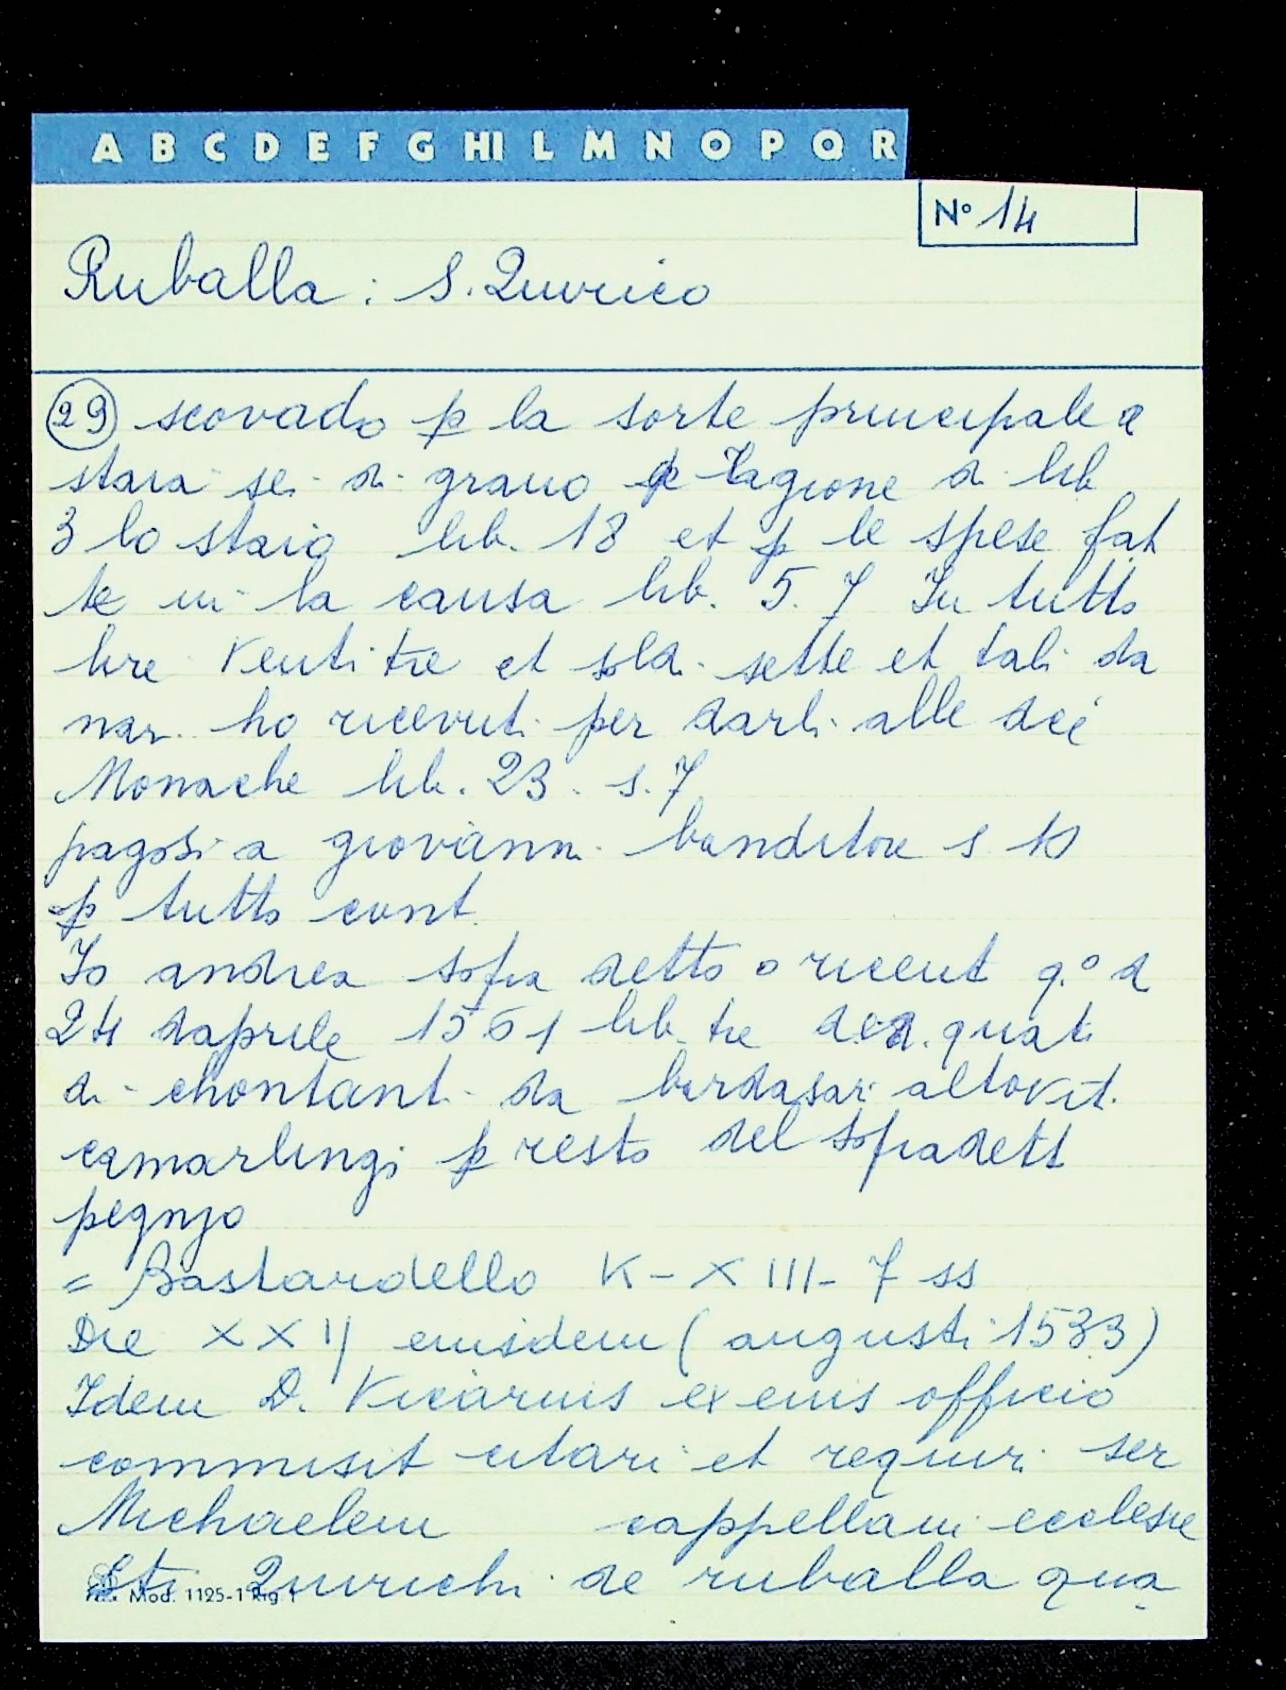 A B C D E F G HI L M N O P Q R
N° 14
Ruballa: S. Quirico
29 scovado p la sorte principale e
staia sei di grano p ragione di lib
3 lo staio lib. 18 et p le spese fat
te in la causa lib. 5. 7 In tutto
lire Ventitre et soldi sette et tali da
nari ho ricevuti per darli alle dcé
Monache lib. 23. s. 7
pagosi a giovanni banditore s 10
p tutto cont.
Io andrea sopra detto o riceut q.° d
24 daprile 1561 lib. tre quat
di chontanti da bardasari altovit.
camarlingi p resto del sopradett
pegnjo
= Bastardello K - XIII - 7 ss
Die XXIJ eiusdem (augusti 1533)
Idem D. Vicarius ex eius officio
commisit citari et requiri ser
Michaelem cappellani ecclesie
Sti Quirichi de ruballa qua
Mod. 1125-1 Rig 1